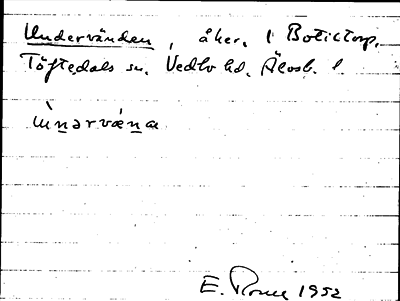 Undervänden, åker, 1 Botiltorp,
Töftedals sn. Vedbo hd. Älvsb. l
ùn̲ərvæn̲a
E. 1952